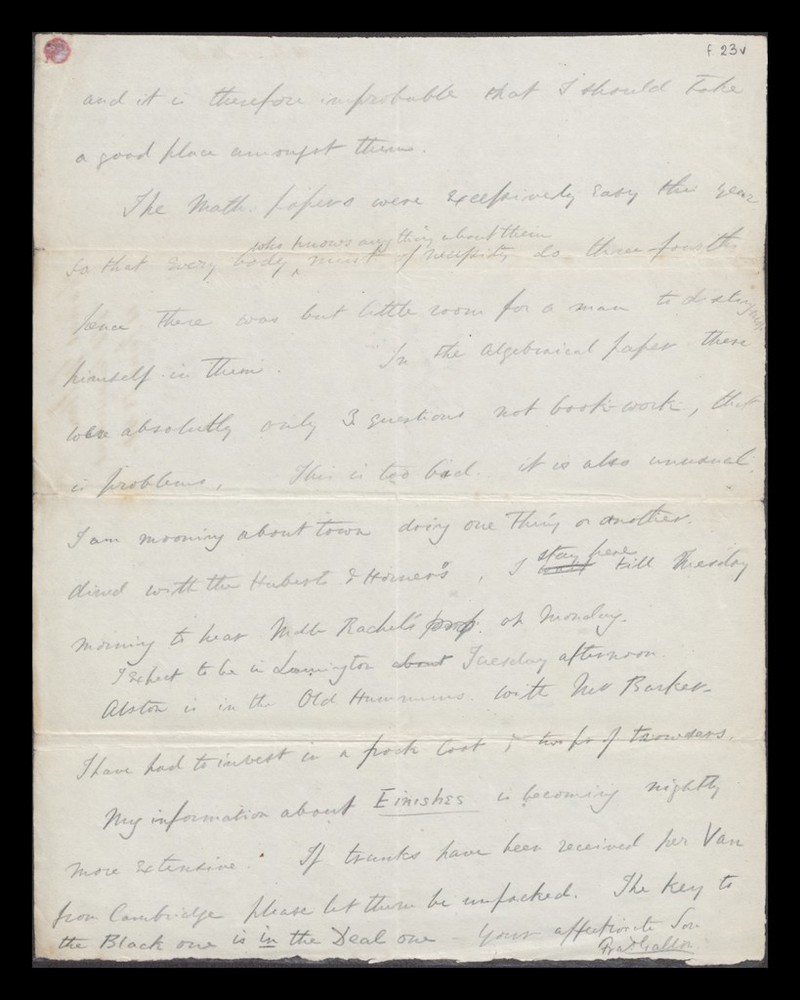 f 23v
and it is therefore improbable that I should take
a good place amongst them.
The Math. papers were excessively easy this year
who knows anything about them
so that every body ‸ must of necessity do three-fourths
hence there was but little room for a man to distinguish
himself in them. In the Algebraical paper there
were absolutely only 3 questions not book-work, that
is problems, This is too bad. it is also unusual.
I am mooning about town doing one thing or another.
stay here
dined with the Hubert's & Horner's, I till Tuesday
morning to hear Mdlle Rachel's on Monday.
I expect to be in Leamington about Tuesday afternoon
Alston is in the Old Hummums. with Mr Barker.
I have had to invest in a frock Coat & two pr of trowsers.
My information about Finishes is becoming nightly
more extensive. If trunks have been received per Van
from Cambridge please let them be unpacked. The key to
the Black one is in the Deal one – Your affectionate Son
Fras Galton